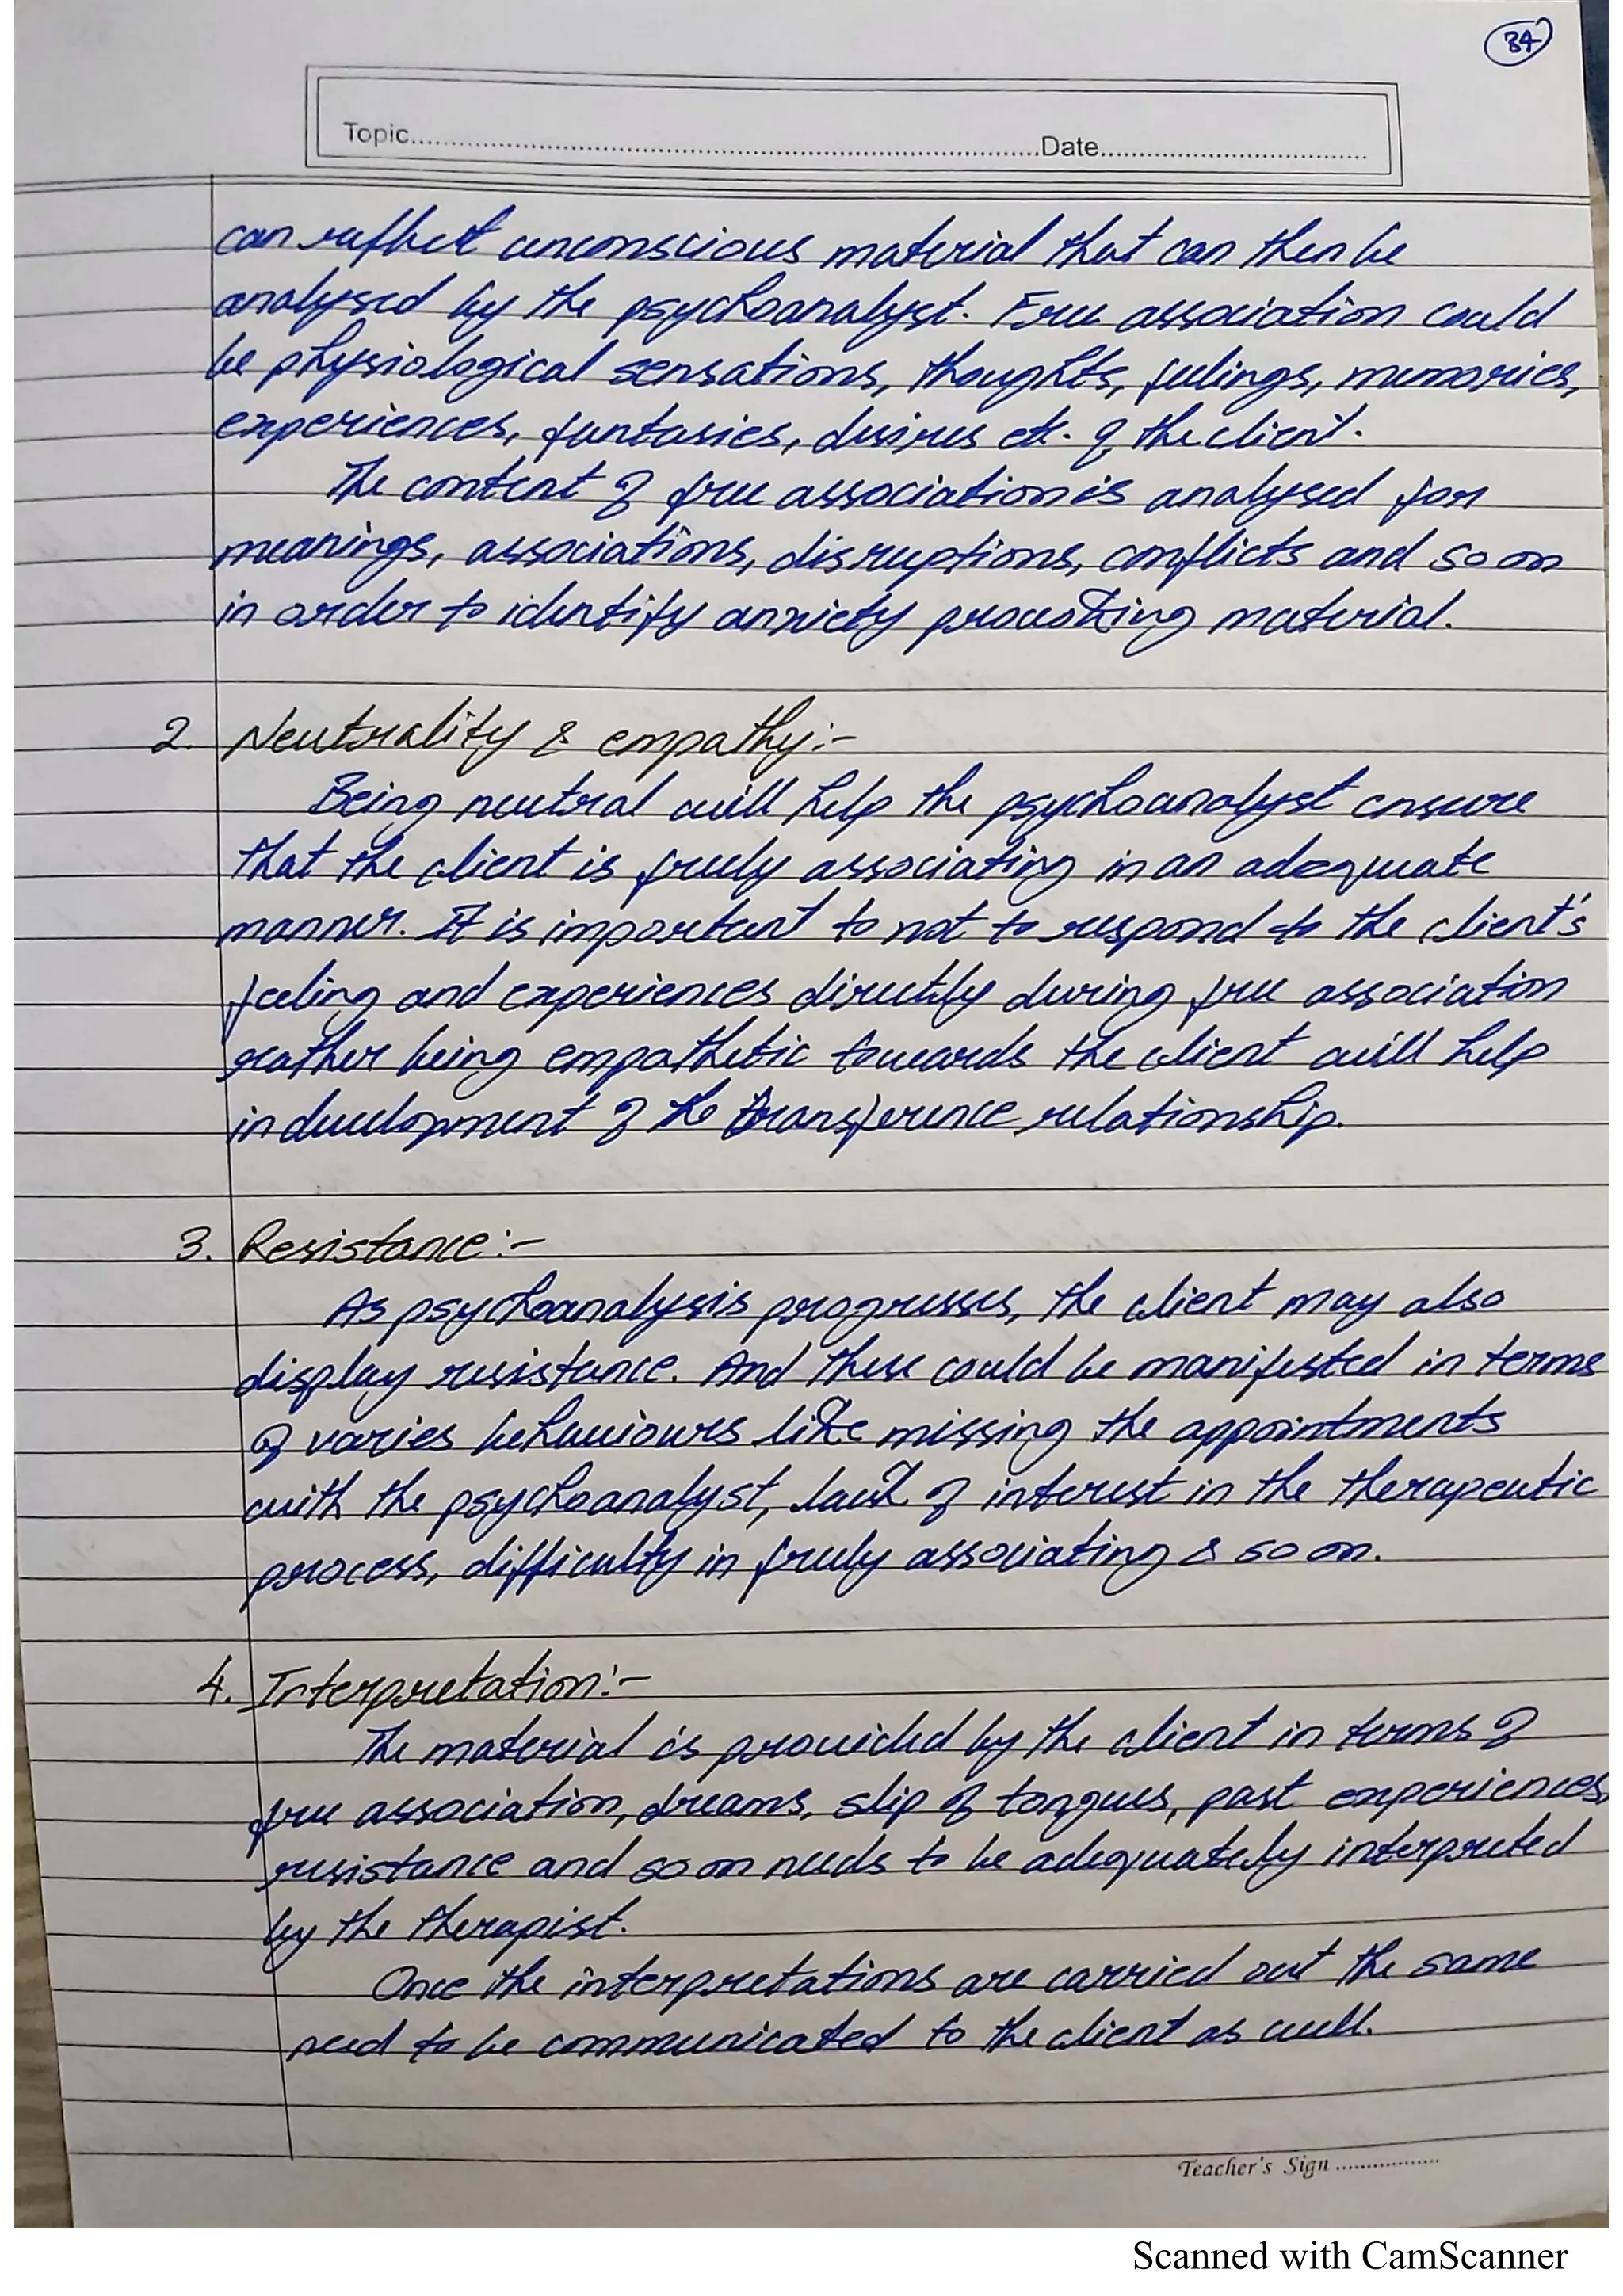 34
Topic.......................................Date...............................
can reflect unconscious material that can then be
analysed by the psychoanalyst. Free association could
be physiological sensations, thoughts, feelings, memories,
experiences, fantasies, desires etc. of the client.
The content of free association is analysed for
meanings, associations, disruptions, conflicts and so on
in order to identify anxiety provoking material.
2. Neutrality & empathy:-
Being neutral will help the psychoanalyst ensure
that the client is freely associating in an adequate
manner. It is important to not to respond to the client's
feeling and experiences directly during free association
rather being empathetic towards the client will help
in development of the transference relationship.
3. Resistance:-
As psychoanalysis progresses, the client may also
display resistance. And these could be manifested in terms
of varies behaviours like missing the appointments
with the psychoanalyst, lack of interest in the therapeutic
process, difficulty in freely associating & so on.
4. Interpretation:-
The material is provided by the client in terms of
free association, dreams, slip of tongues, past experiences,
resistance and so on needs to be adequately interpreted
by the therapist.
Once the interpretations are carried out the same
need to be communicated to the client as well.
Teacher's Sign ..................
Scanned with CamScanner